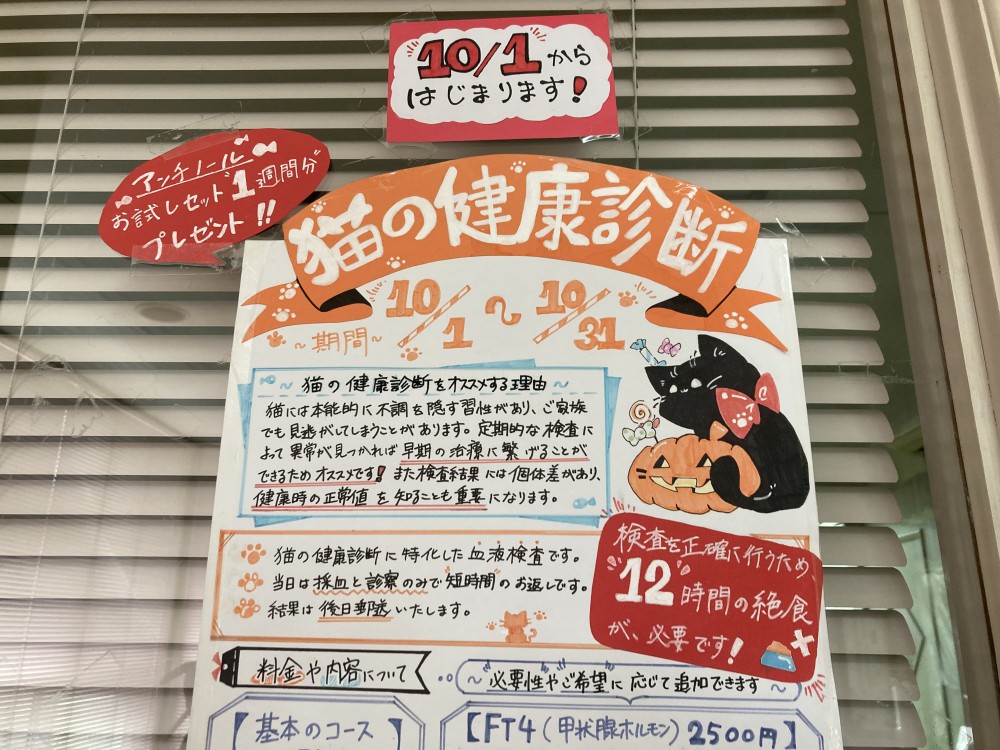 10/1から
はじまります!
アンチノール
お試しセット1週間分
プレゼント!!
猫の健康診断
~期間~ 10/1 ~ 10/31
~猫の健康診断をオススメする理由~
猫には本能的に不調を隠す習性があり、ご家族
でも見逃がしてしまうことがあります。定期的な検査に
よって異常が見つかれば早期の治療に繋げることが
できるためオススメです!また検査結果には個体差があり、
健康時の正常値を知ることも重要になります。
猫の健康診断に特化した血液検査です。
当日は採血と診察のみで"短時間"のお返しです。
結果は後日郵送いたします。
検査を正確に行うため
"12"時間の絶食
が、必要です!
料金や内容について
~必要性やご希望に応じて追加できます~
【基本のコース
【FT4(甲状腺ホルモン)2500円】